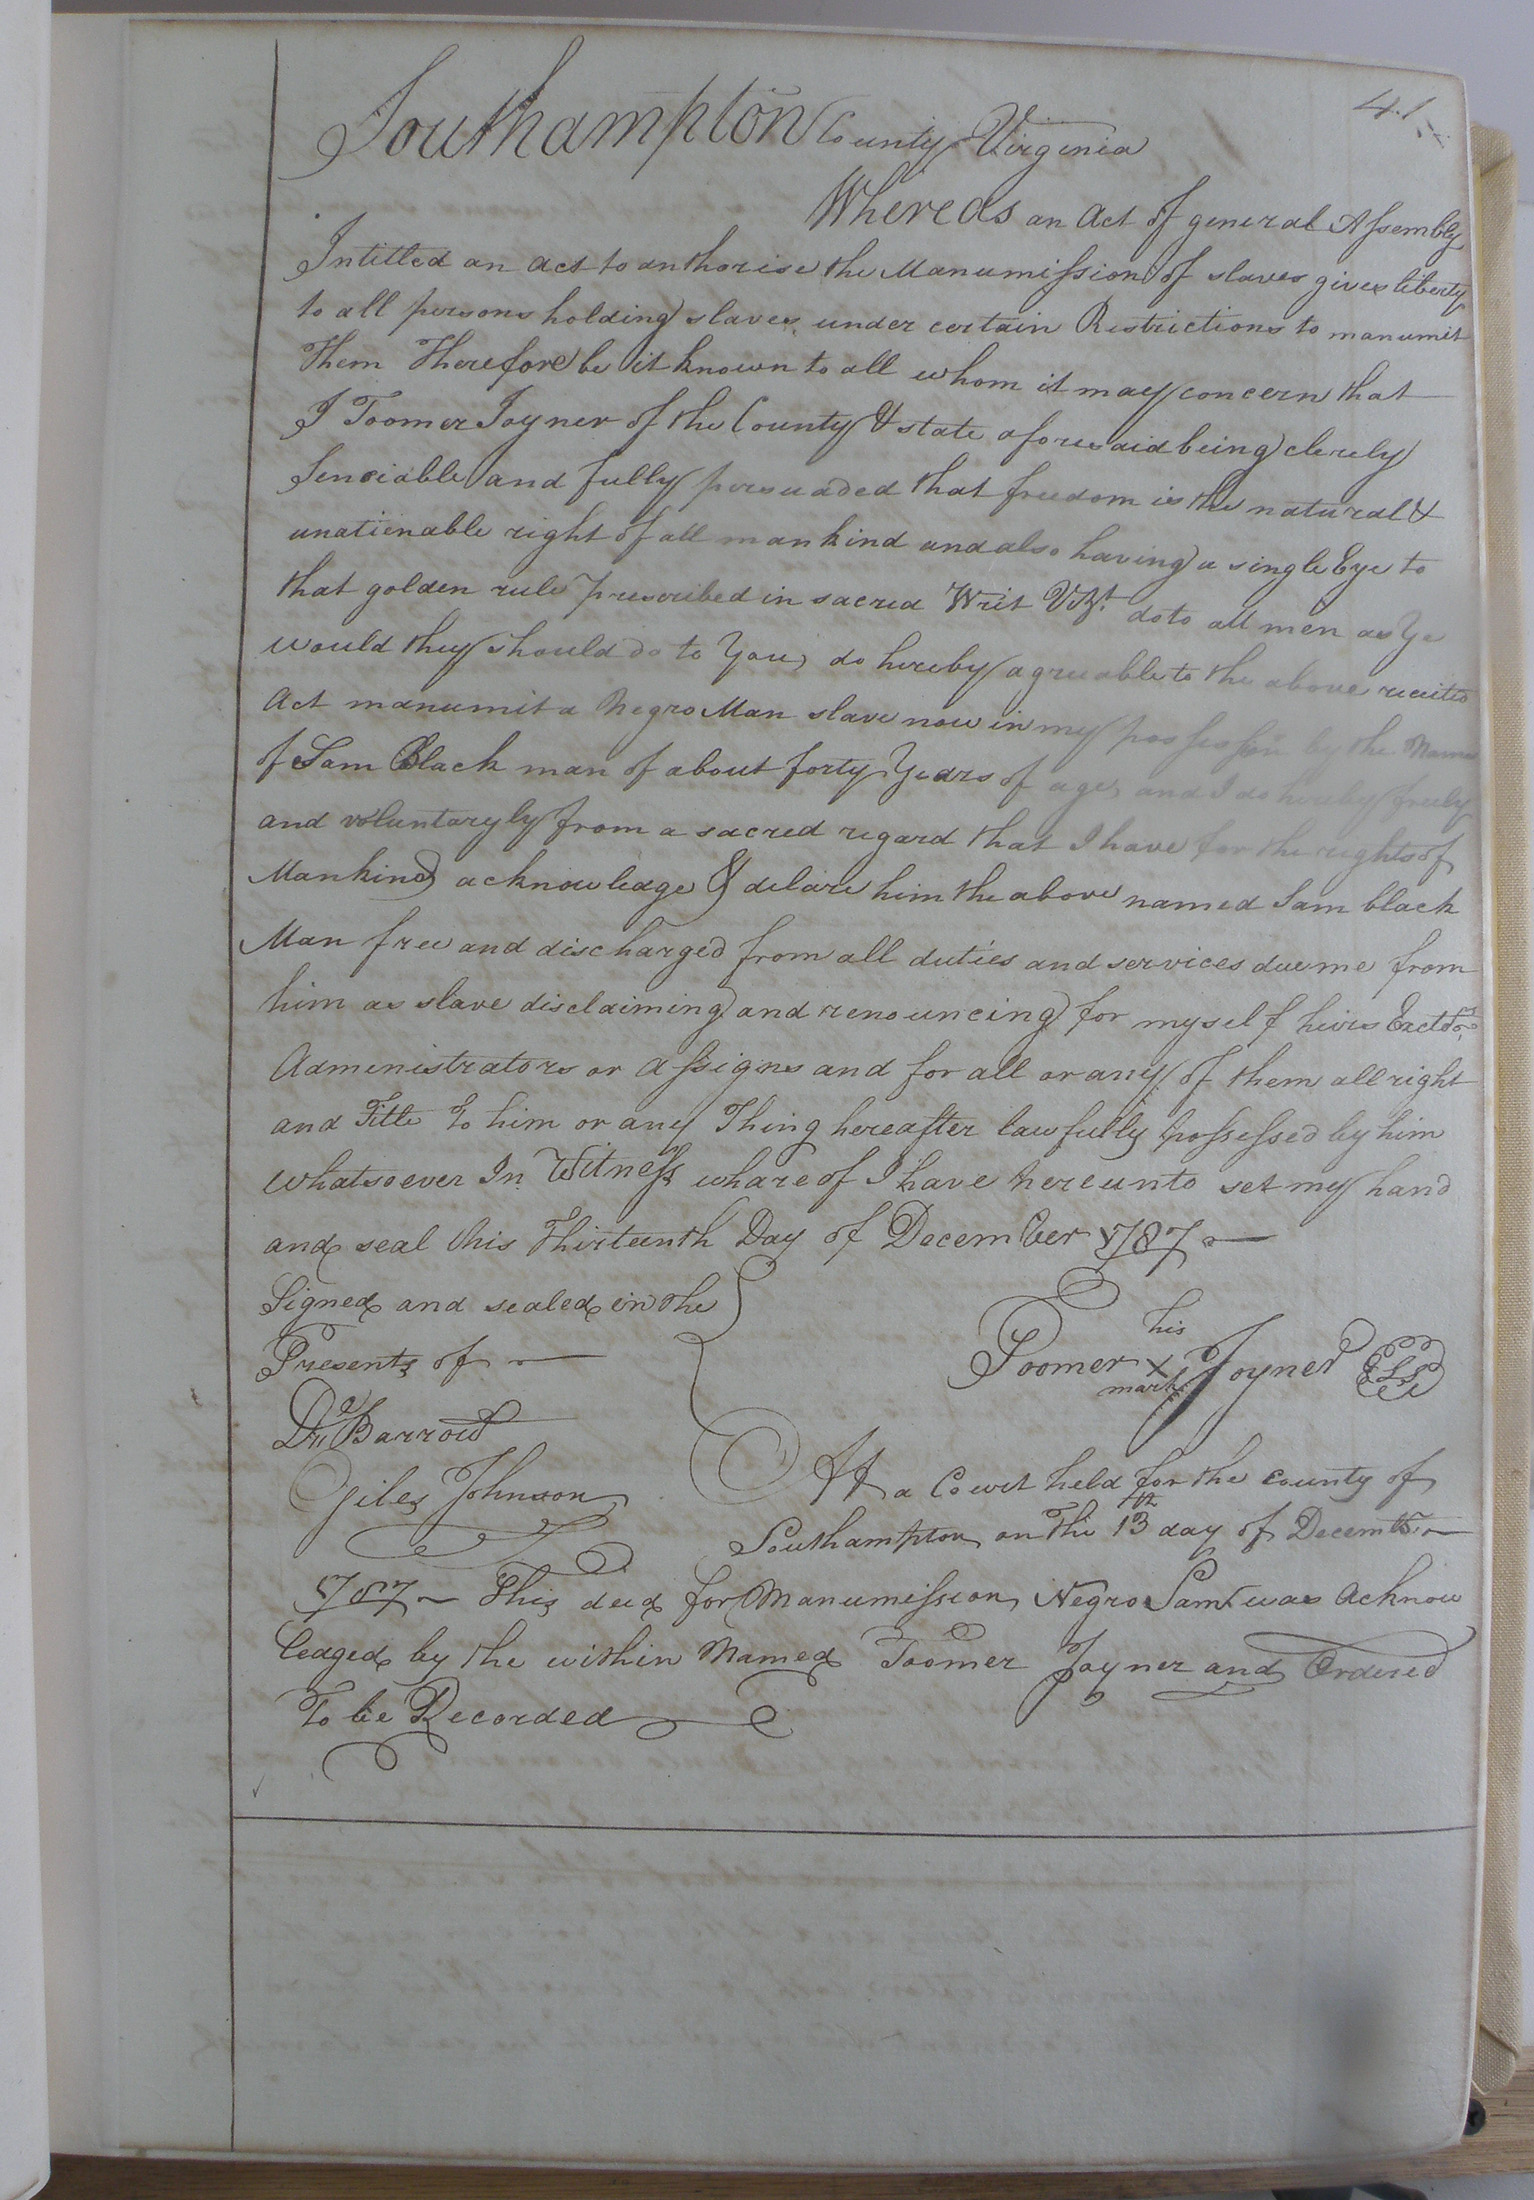 41
Southampton County Virginia
Whereas an Act of general Assembly
Intitled an act to authorise the Manumission of slaves gives liberty
to all persons holding slaves under certain Restrictions to manumit
them Therefore be it known to all whom it may concern that
I Toomer Joyner of the County & state aforesaid being clerely
Senciable and fully persuaded that freedom is the natural &
unatienable right of all mankind and also having a single Eye to
that golden rule prescribed in sacred Writ Vizt. do to all men as Ye
would they should do to You, do hereby agreeable to the above recited
Act manumit a Negro Man slave now in my possession by the Name
of Sam Black man of about forty Years of age, and I do hereby freely
and voluntaryly from a sacred regard that I have for the rights of
Mankind acknowledge & delare him the above named Sam black
Man free and discharged from all duties and services due me from
him as slave disclaiming and renouncing for myself heirs
Administrators or assigns and for all or any of them all right
and Title to him or any Thing hereafter lawfully possessed by him
whatsoever In Witness whareof I have hereunto set my hand
and seal this Thirteenth Day of December 1787 —
Signed and sealed in the
Presents of —
his
Toomer x Joyner LS
mark
Barrow
Giles Johnson
At a Court held for the county of
Southampton on the 13th day of Decembr. —
1787 — This deed for Manumission Negro Sam was Acknow
ledged by the within Named Toomer Joyner and Ordered
To be Recorded